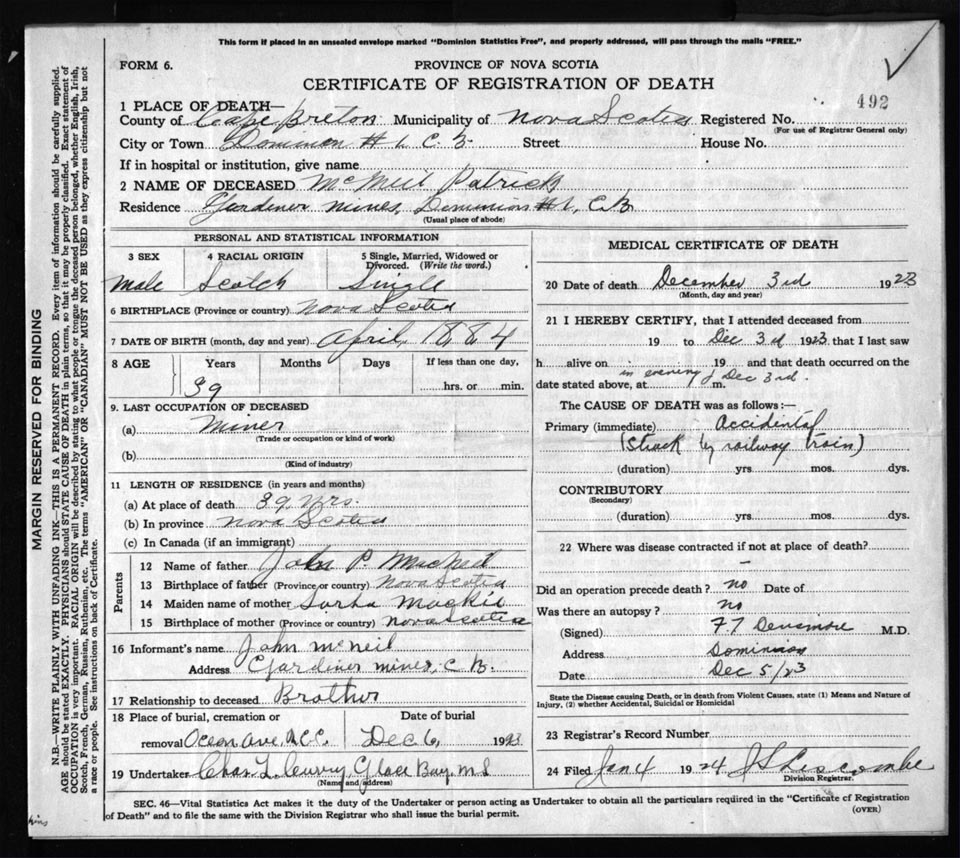 This form if placed in an unsealed envelope marked "Dominion Statistics Free", and properly addressed, will pass through the mails "FREE."
FORM 6.
PROVINCE OF NOVA SCOTIA
CERTIFICATE OF REGISTRATION OF DEATH
492
1 PLACE OF DEATH—
County of Cape Breton Municipality of Nova Scotia Registered No.
(For use of Registrar General only)
City or Town Dominion #1, C. B. Street House No.
If in hospital or institution, give name
2 NAME OF DECEASED McNeil Patrick
Residence Gardiner Mines, Dominion #1, C B
(Usual place of abode)
PERSONAL AND STATISTICAL INFORMATION
3 SEX 4 RACIAL ORIGIN 5 Single, Married, Widowed or Divorced. (Write the word.)
Male Scotch Single
6 BIRTHPLACE (Province or country) Nova Scotia
7 DATE OF BIRTH (month, day and year) April, 1884
8 AGE Years Months Days If less than one day,
39 hrs. or min.
9. LAST OCCUPATION OF DECEASED
(a) Miner
(Trade or occupation or kind of work)
(b)
(Kind of industry)
11 LENGTH OF RESIDENCE (in years and months)
(a) At place of death 39 yrs.
(b) In province Nova Scotia
(c) In Canada (if an immigrant)
Parents
12 Name of father John P. McNeil
13 Birthplace of father (Province or country) Nova Scotia
14 Maiden name of mother
15 Birthplace of mother (Province or country) Nova Scotia
16 Informant's name John McNeil
Address Gardiner Mines, C. B.
17 Relationship to deceased Brother
18 Place of burial, cremation or Date of burial
removal Ocean Ave, Dec 6, 1923
19 Undertaker Chas L Curry, Glace Bay, N S
(Name and address)
MEDICAL CERTIFICATE OF DEATH
20 Date of death December 3rd 1923
(Month, day and year)
21 I HEREBY CERTIFY, that I attended deceased from
19 to Dec 3rd 1923 that I last saw
h alive on 19 and that death occurred on the
date stated above, at in evening of Dec 3rd. m.
The CAUSE OF DEATH was as follows:—
Primary (immediate) Accidental
(Struck by railway train)
(duration) yrs. mos. dys.
CONTRIBUTORY
(Secondary)
(duration) yrs. mos. dys.
22 Where was disease contracted if not at place of death?
-
Did an operation precede death? no Date of
Was there an autopsy? no
(Signed) M.D.
Address Dominion
Date Dec 5/23
State the Disease causing Death, or in death from Violent Causes, state (1) Means and Nature of
Injury, (2) whether Accidental, Suicidal or Homicidal
23 Registrar's Record Number
24 Filed Jan 4 1924
Division Registrar.
SEC. 46—Vital Statistics Act makes it the duty of the Undertaker or person acting as Undertaker to obtain all the particulars required in the "Certificate of Registration
of Death" and to file the same with the Division Registrar who shall issue the burial permit.
(OVER)
MARGIN RESERVED FOR BINDING
N.B.—WRITE PLAINLY WITH UNFADING INK—THIS IS A PERMANENT RECORD. Every item of information should be carefully supplied.
AGE should be stated EXACTLY. PHYSICIANS should STATE CAUSE OF DEATH in plain terms, so that it may be properly classified. Exact statement of
OCCUPATION is very important. RACIAL ORIGIN will be described by stating to what people or tongue the deceased person belonged, whether English, Irish,
Scotch, French, German, Russian, Ruthenian, etc. The terms "AMERICAN" OR "CANADIAN" MUST NOT BE USED as they express citizenship but not
a race or people. See instructions on back of Certificate.